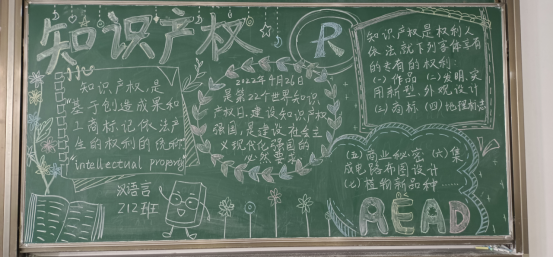 知识产权
知识产权，是
基于创造成果和
工商标记依法产
生的权利的统称
"intellectual property"
汉语言
212班
2022年4月26日
是第22个世界知识
产权日，建设知识产权
强国，是建设社会主
义现代化强国的
必然要求
R
知识产权是权利人
依法就下列客体享有
的专有的权利：
(一)作品 (二)发明，实
用新型，外观设计
(三)商标 (四)地理标志
(五)商业秘密 (六)集
成电路布图设计
(七)植物新品种……
READ